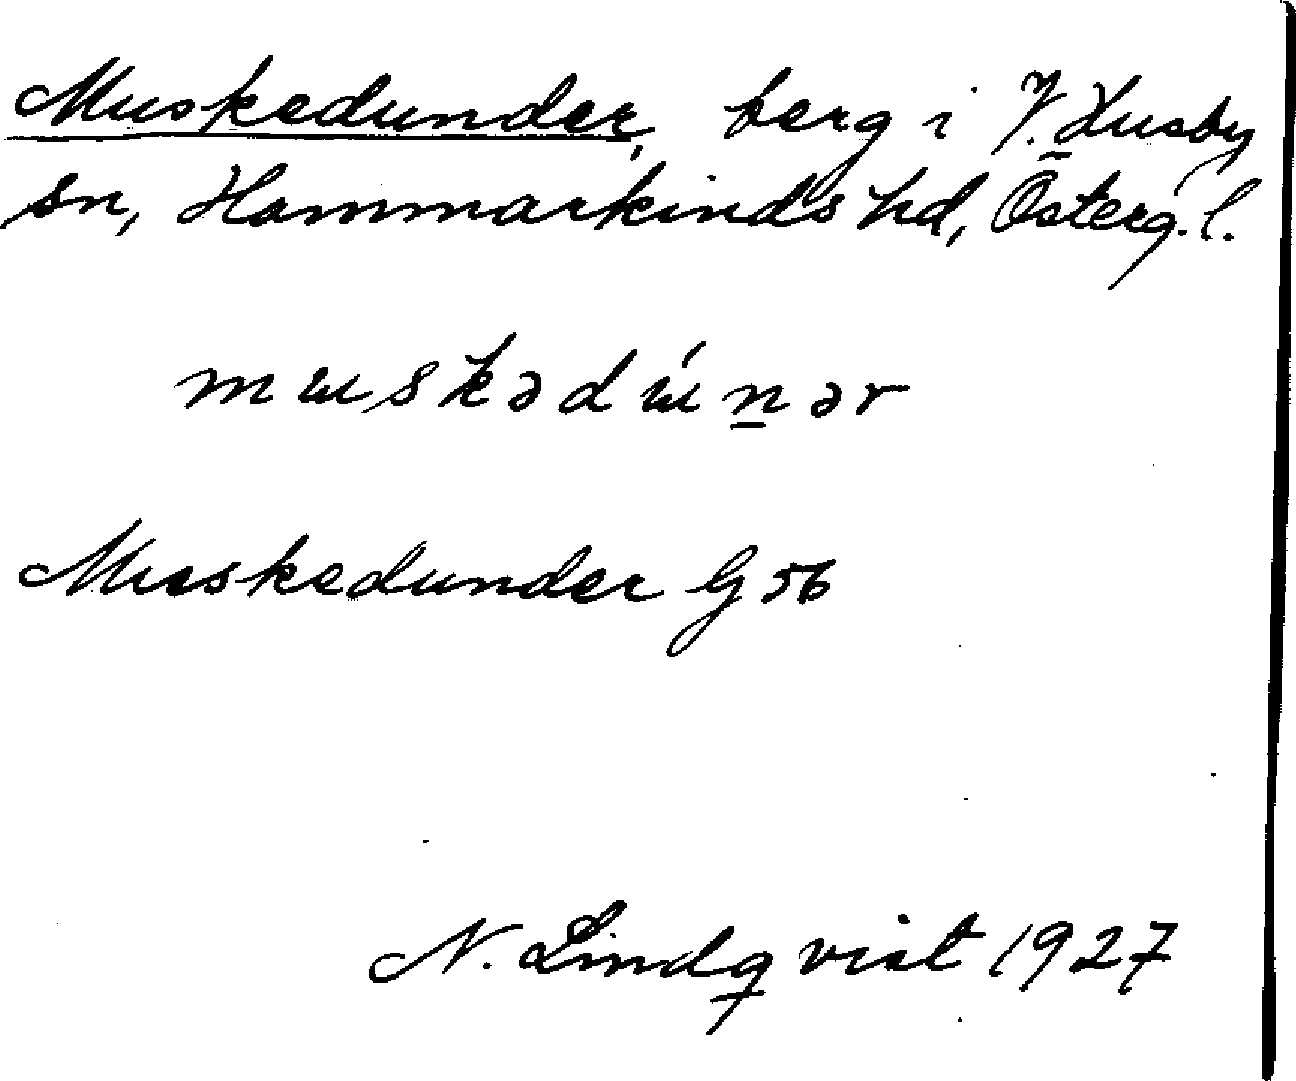 Muskedunder, berg i V. Husby
sn, Hammarkinds hd, Österg. l.
mɯskədɯ́n̲ər
Muskedunder G 56
N. Lindqvist 1927